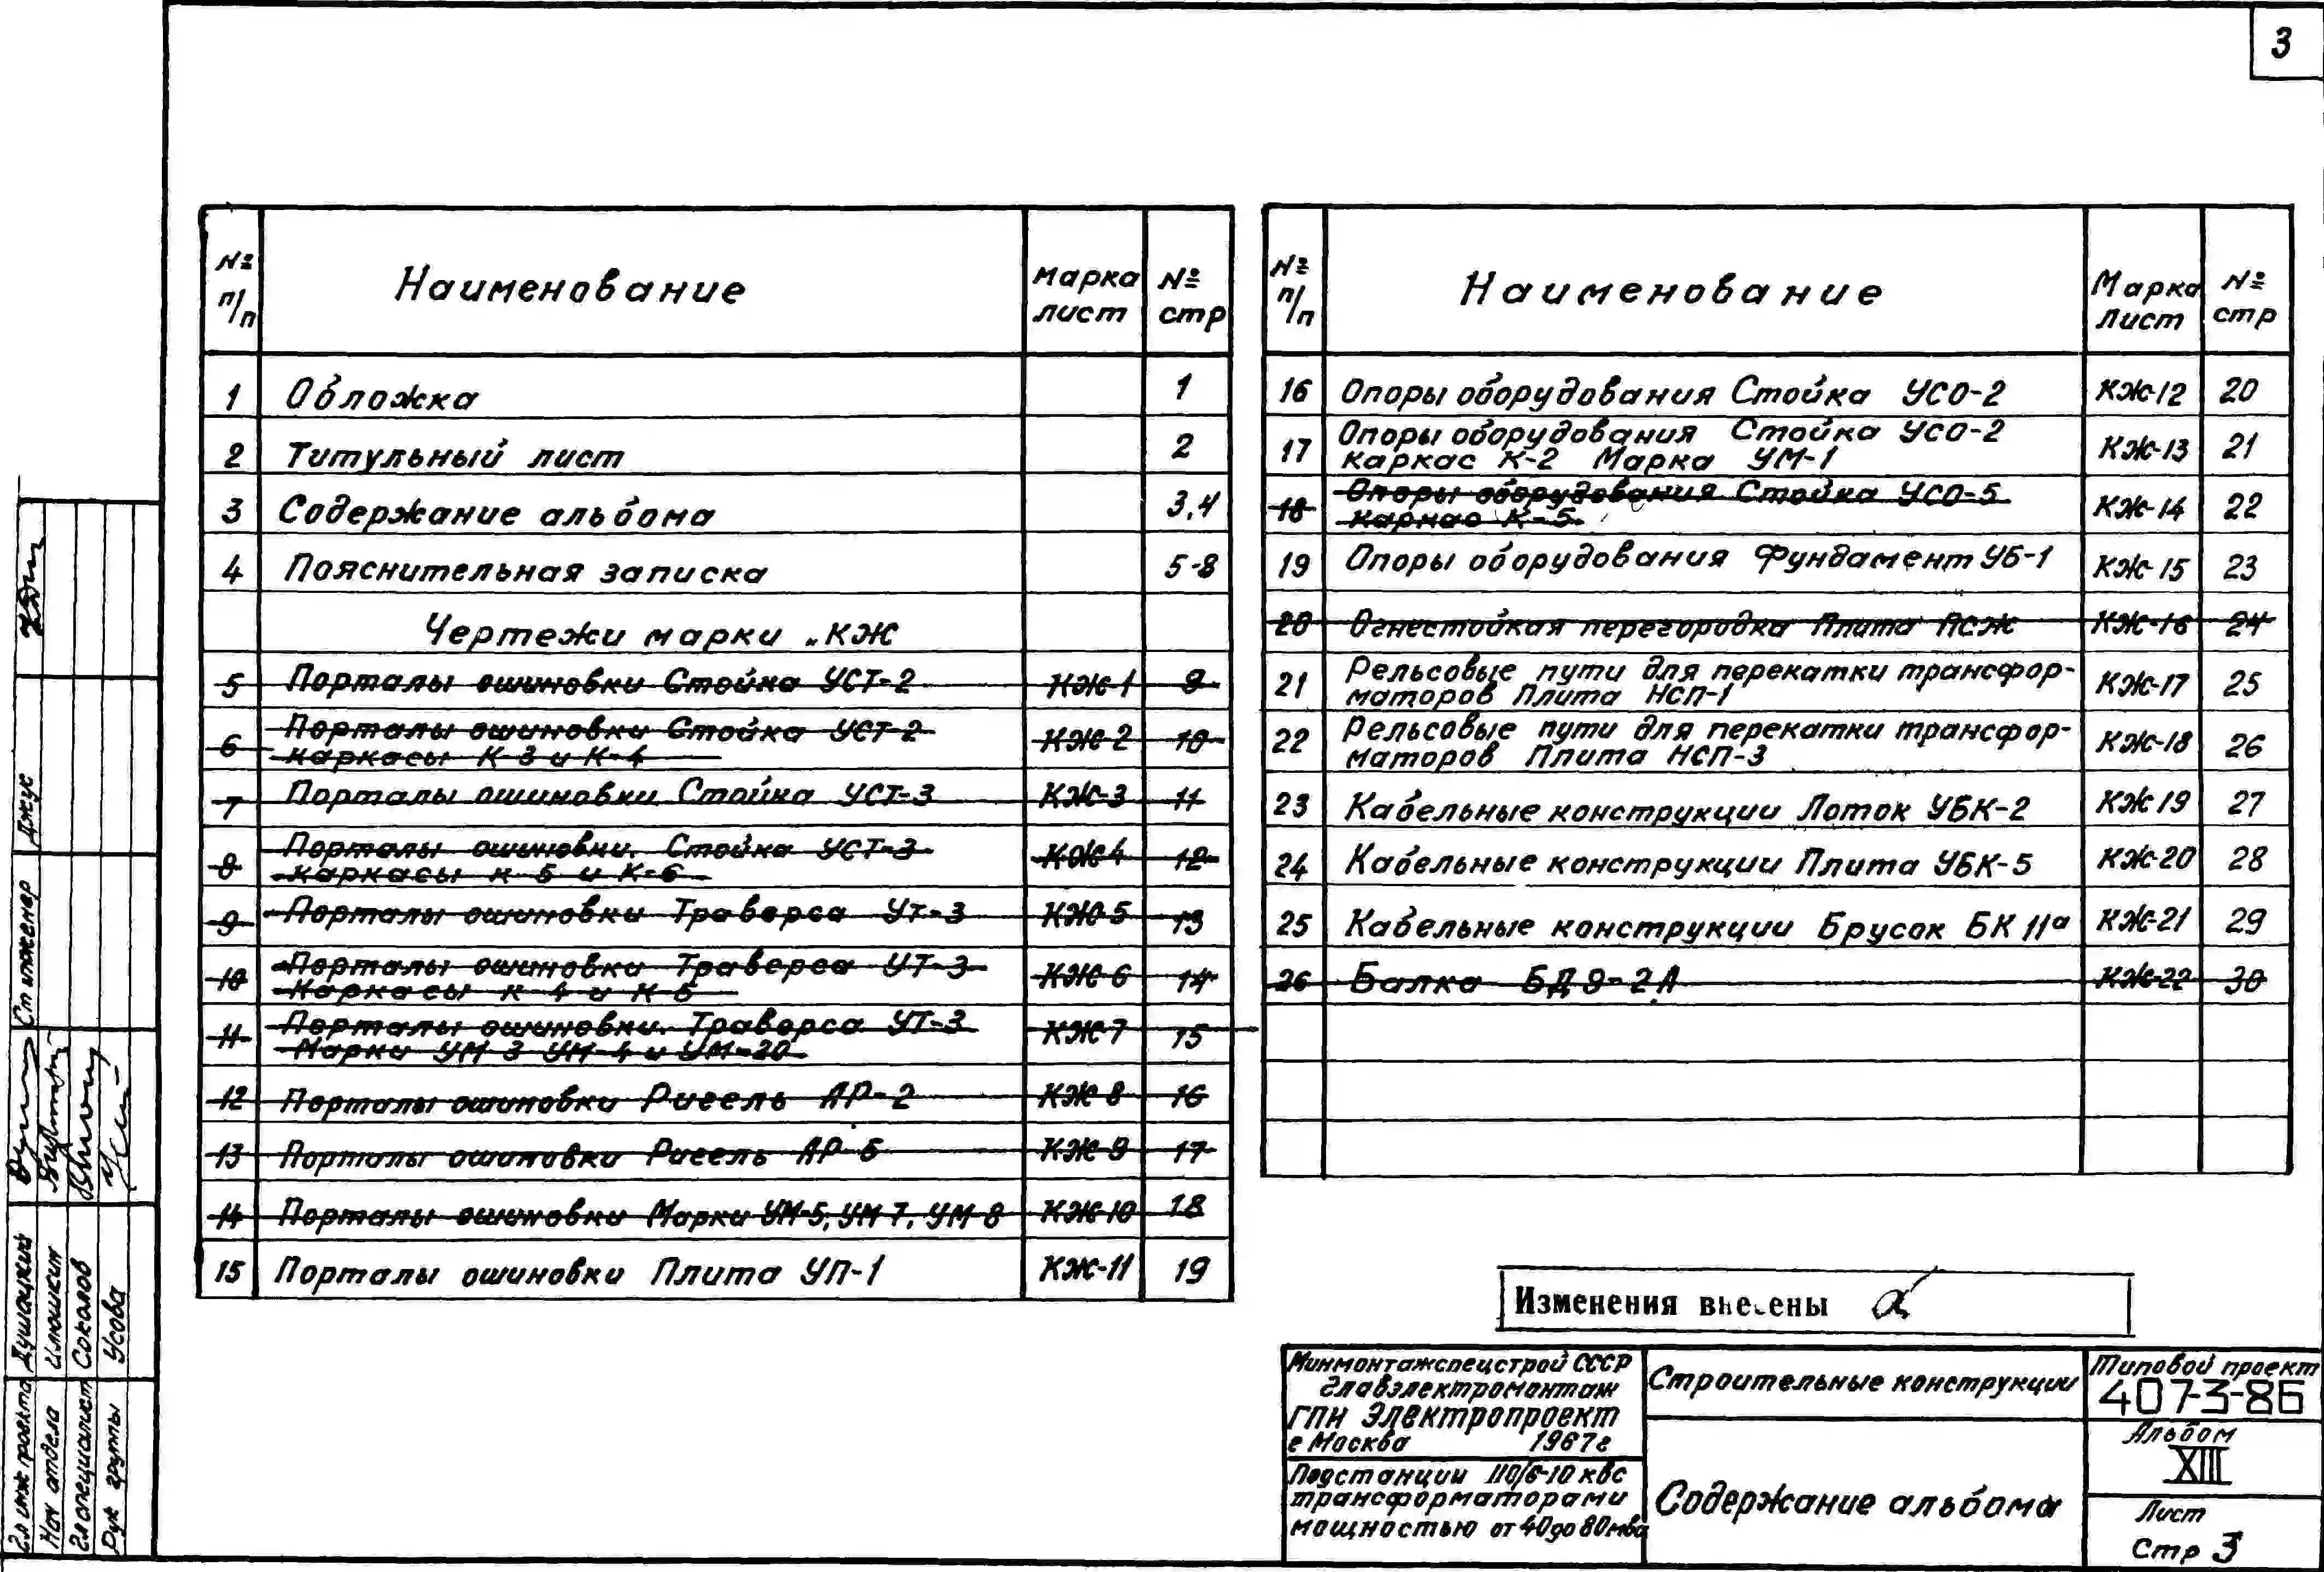 3
№ п/п Наименование Марка лист № стр
1 Обложка 1
2 Титульный лист 2
3 Содержание альбома 3,4
4 Пояснительная записка 5-8
Чертежи марки „КЖ
5 Порталы ошиновки Стойка УСТ-2 КЖ-1 9
6 Порталы ошиновки Стойка УСТ-2 КЖ-2 10
каркасы К-3 и К-4
7 Порталы ошиновки Стойка УСТ-3 КЖ-3 11
8 Порталы ошиновки. Стойка УСТ-3 КЖ-4 12
каркасы К-5 и К-6
9 Порталы ошиновки Траверса УТ-3 КЖ-5 13
10 Порталы ошиновки Траверса УТ-3 КЖ-6 14
Каркасы К-4 и К-5
11 Порталы ошиновки. Траверса УТ-3 КЖ-7 15
Марки УМ-3 УМ-4 и УМ-20
12 Порталы ошиновки Ригель АР-2 КЖ-8 16
13 Порталы ошиновки Ригель АР-6 КЖ-9 17
14 Порталы ошиновки Марки УМ-5, УМ-7, УМ-8 КЖ-10 18
15 Порталы ошиновки Плита УП-1 КЖ-11 19
№ п/п Наименование Марка лист № стр
16 Опоры оборудования Стойка УСО-2 КЖ-12 20
17 Опоры оборудования Стойка УСО-2 КЖ-13 21
каркас К-2 Марка УМ-1
18 Опоры оборудования Стойка УСО-5 КЖ-14 22
каркас К-5.
19 Опоры оборудования Фундамент УБ-1 КЖ-15 23
20 Огнестойкая перегородка Плита ПСЖ КЖ-16 24
21 Рельсовые пути для перекатки трансфор- КЖ-17 25
маторов Плита НСП-1
22 Рельсовые пути для перекатки трансфор- КЖ-18 26
маторов Плита НСП-3
23 Кабельные конструкции Лоток УБК-2 КЖ 19 27
24 Кабельные конструкции Плита УБК-5 КЖ-20 28
25 Кабельные конструкции Брусок БК 11а КЖ-21 29
26 Балка БД 9-2А КЖ-22 30
Изменения внесены
Минмонтажспецстрой СССР
Главэлектромонтаж
ГПИ Электропроект
г Москва 1967г
Подстанции 110/6-10 кв с
трансформаторами
мощностью от 40 до 80 мва
Строительные конструкции
Содержание альбома
Типовой проект
407-3-86
Альбом
XIII
Лист
Стр 3
Гл инж проекта Душацкий
Нач отдела Илюшкин
Гл специалист Соколов
Рук группы Усова
Ст инженер Джус